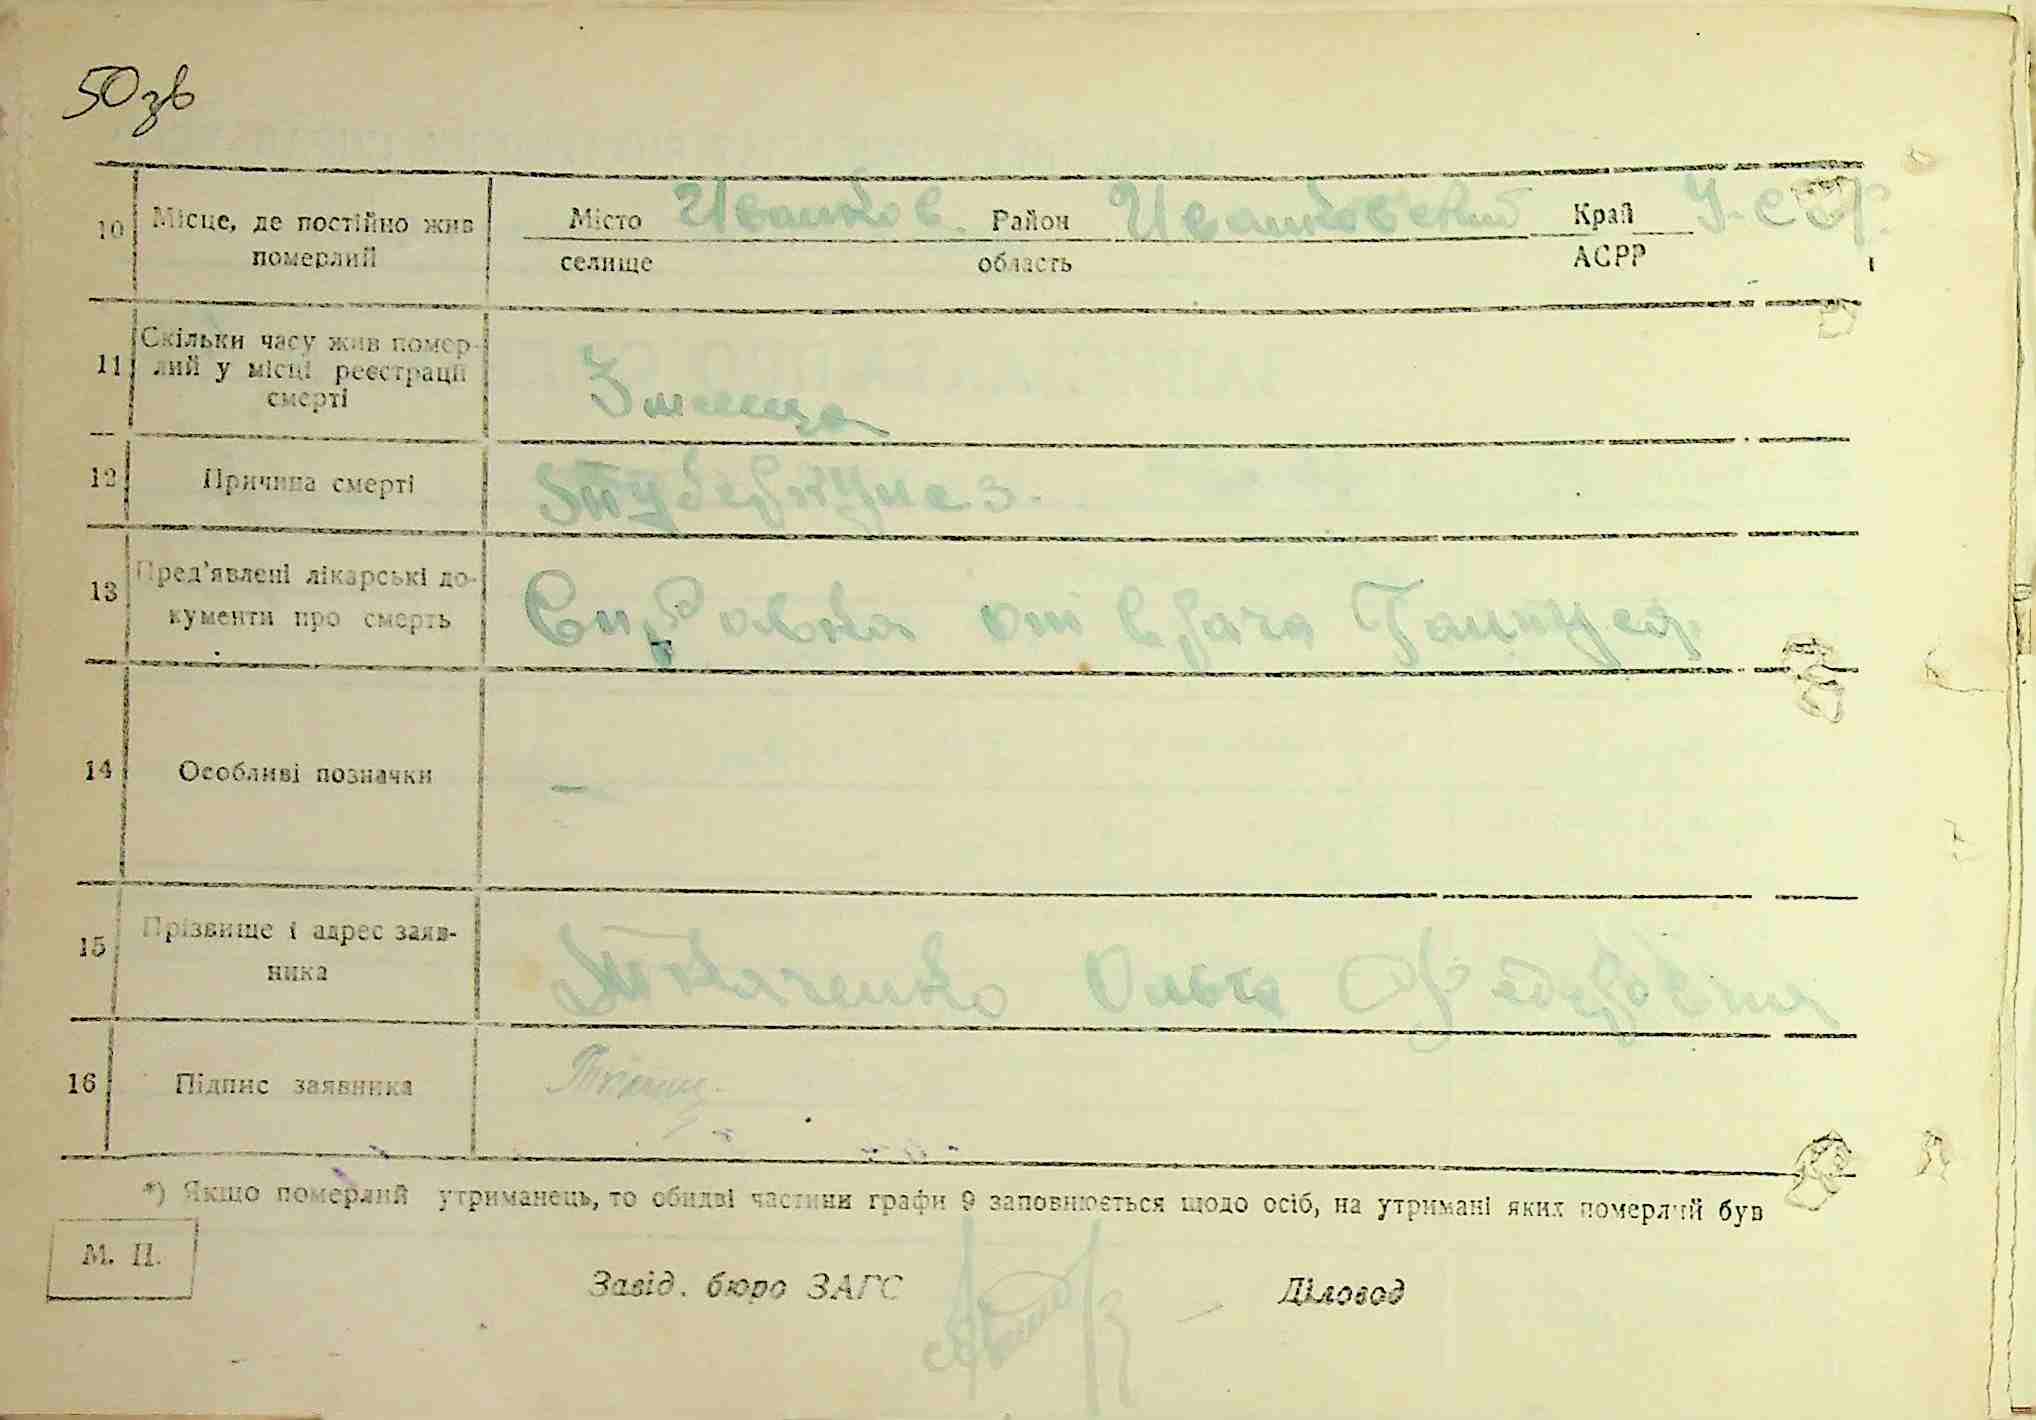 50зв
10 Місце, де постійно жив померлий Місто Иванков Район Иванковский Край У.ССР.
селище область АСРР
11 Скільки часу жив помер-
лий у місці реєстрації
смерті
3 месяца
12 Причина смерті Туберкулез.
13 Пред'явлені лікарські до-
кументи про смерть
Справка от врача
14 Особливі позначки —
15 Прізвище і адрес заяв-
ника
Ткаченко Ольга Федоровна
16 Підпис заявника
*) Якщо померлий утриманець, то обидві частини графи 9 заповнюється щодо осіб, на утримані яких померлий був
М. П.
Завід. бюро ЗАГС Діловод